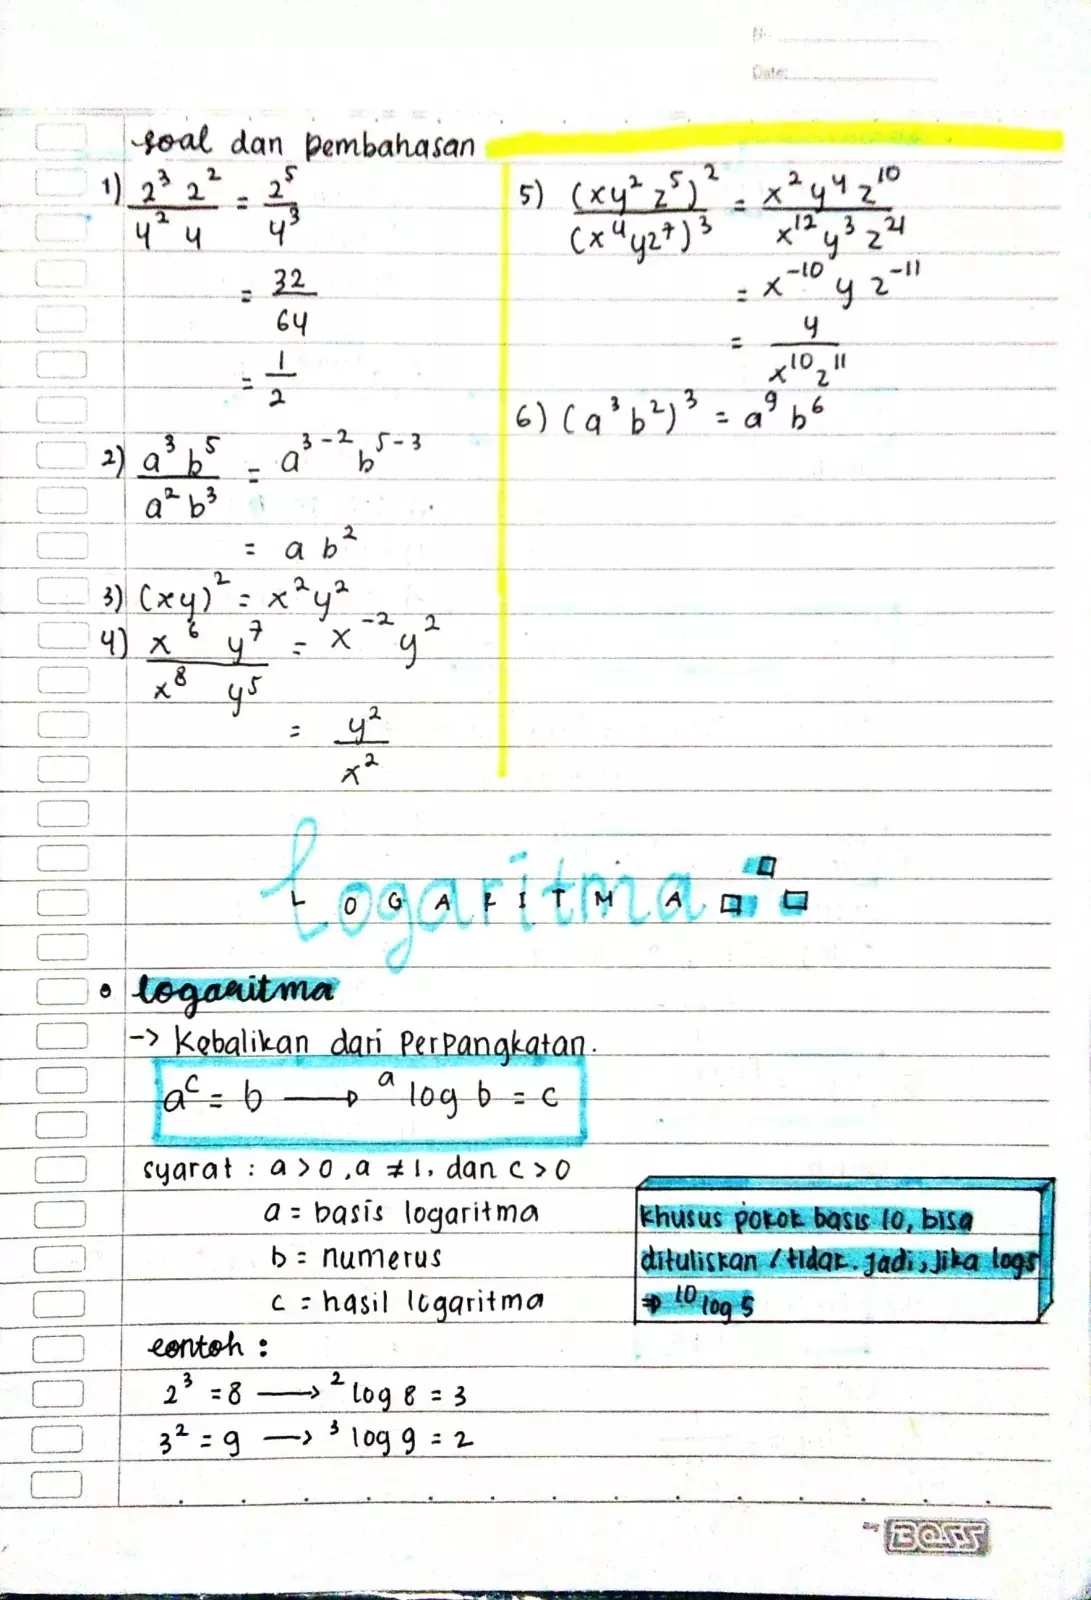 No.
Date:
soal dan pembahasan
1) 2³ 2² / 4² 4 = 2⁵ / 4³
= 32 / 64
= 1 / 2
2) a³ b⁵ / a² b³ = a³⁻² b⁵⁻³
= a b²
3) (xy)² = x² y²
4) x⁶ y⁷ / x⁸ y⁵ = x⁻² y²
= y² / x²
5) (xy² z⁵)² / (x⁴yz⁷)³ = x² y⁴ z¹⁰ / x¹² y³ z²¹
= x⁻¹⁰ y z⁻¹¹
= y / x¹⁰ z¹¹
6) (a³ b²)³ = a⁹ b⁶
Logaritma
LOGARITMA
• logaritma
-> Kebalikan dari Perpangkatan.
aᶜ = b → ᵃ log b = c
syarat : a > 0, a ≠ 1, dan c > 0
a = basis logaritma
b = numerus
c = hasil logaritma
khusus pokok basis 10, bisa
dituliskan / tidak. jadi, jika log 5
⇒ ¹⁰ log 5
contoh :
2³ = 8 → ² log 8 = 3
3² = 9 → ³ log 9 = 2
BOSS